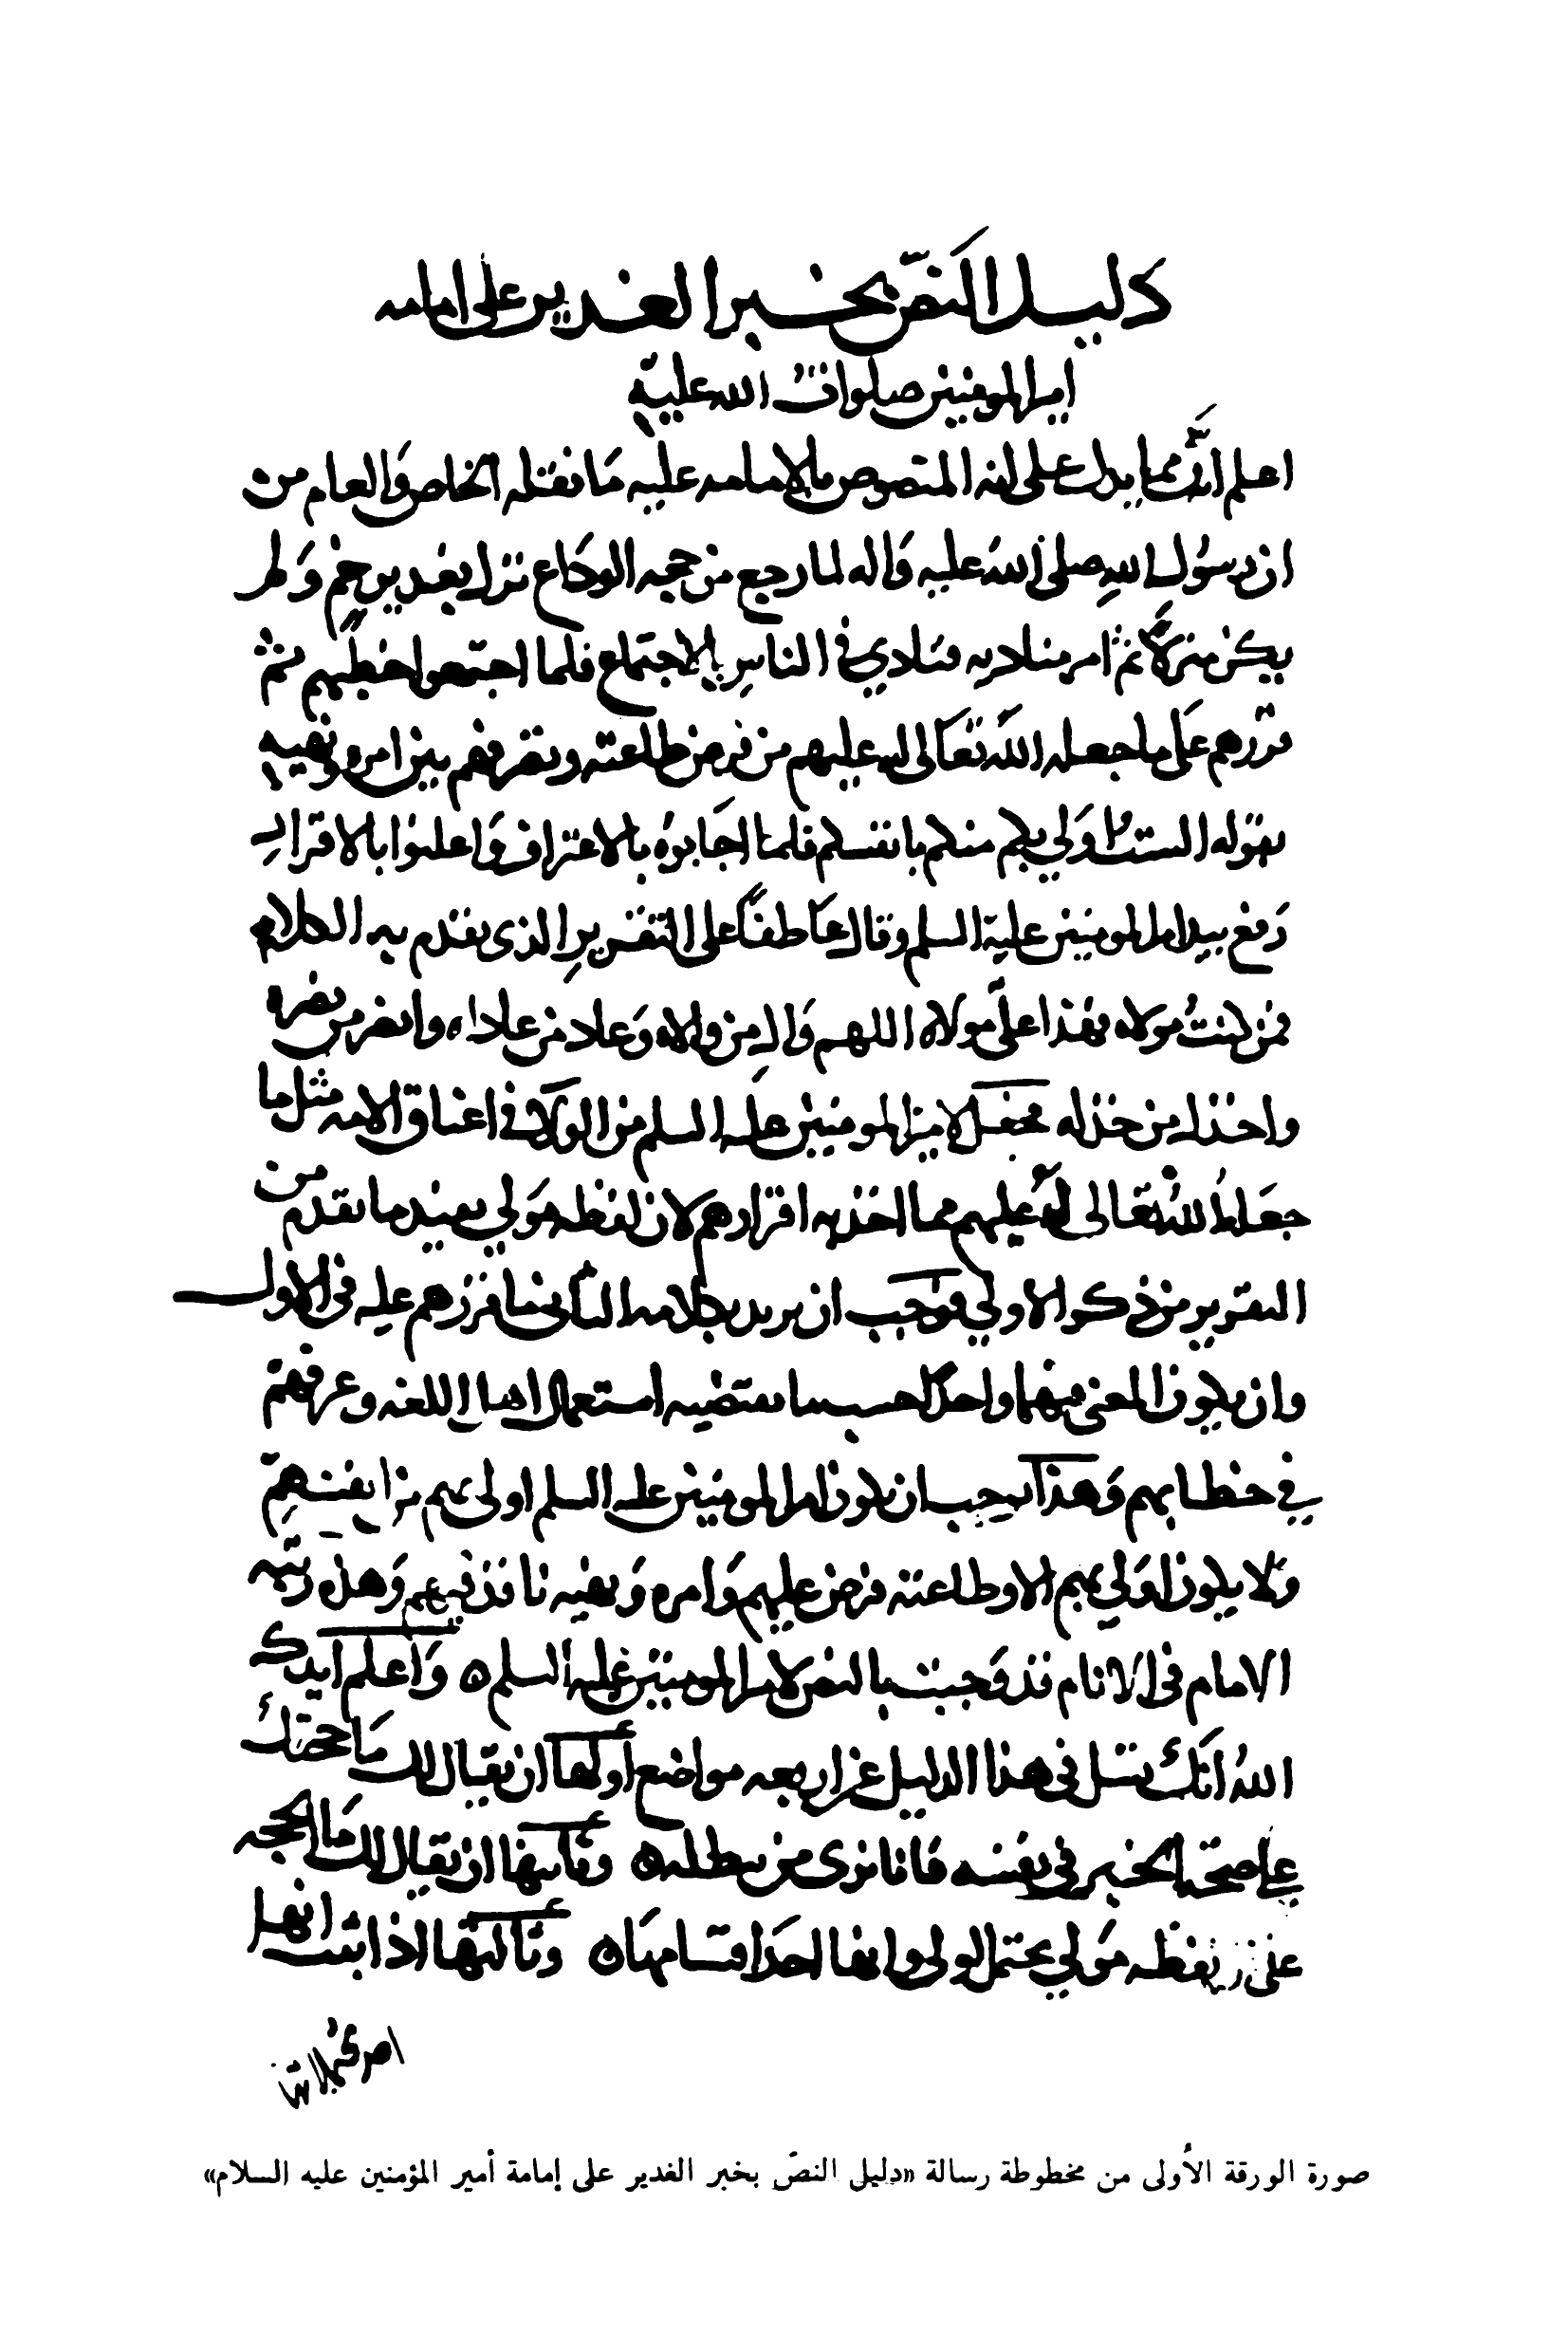 دليل النصّ بخبر الغدير على امامه
امير المومنين صلوات الله عليه
اعلم انّ مما يدل على انه المنصوص بالامامه عليه مَا نقله الخاص وَالعام من
ان رسُول اللهِ صلى اللهُ عليه وَاله لما رجع من حجه الودَاع نزل بغدير خم وَلم
يكن منزلًا ثم امر مناديه فنادي في الناسِ بالاجتماع فلما اجتمعوا خطبهم ثم
قررهم عَلى ما جعله اللهُ تعَالى له عليهم من فرض طاعته وتصرفهم بين امره ونهيه
بقوله الست اَولي بكم منكم بانفسكم فلما اجَابوهُ بالاعتراف وَاعلنوا بالاقرارِ
رَفع بيد امير المومنين عليه السلم وقال عَاطفًا على التقريرِ الذى تقدم به الكلام
فمن كنتُ مولاه فهذا علىّ مَولاه اللهم وَالِ من والاه وَعاد من عاداه وانصر من نصره
واخذل من خذله فجعل لامير المومنين عليه السلم من الولَاء في اعناق الامه مثل ما
جعَله اللهُ تعَالى لهُ عليهم مما اخذ به اقرارهم لان لفظه مَولي يفيد ما تقدم من
التقرير من ذكر الاولي فوَجب ان يريد بكلامه الثانى ما قررهم عليه فى الاول
وان يكون المعنى فيهما واحدًا حسب ما يقتضيه استعمال اهل اللغه وعرفهم
في خطابهم وَهذا يوجب ان يكون امير المومنين عليه السلم اولى بهم من انفسهم
وَلا يكون اَولي بهم الا وطاعته فرض عليهم وَامره وَنهيه نافذ فيهم وَهذه رتبه
الامام فى الانام قد وَجبت بالنص لامير المومنين عليه السلم ه وَاعلم ايدك
اللهُ انّكَ تسل فى هذا الدليل عن اربعه مواضع أولها ان يقال لك مَا حجتكَ
على صحة الخبر في نفسه فانا نرى من يبطله ه وثَانيها ان يقال لك مَا الحجه
على ان لفظه مَولي يحتمل اولى وانها احَد اقسامهَا ه وثَالثها اذا ثبت انها
صورة الورقة الأولى من مخطوطة رسالة «دليل النصّ بخبر الغدير على إمامة أمير المؤمنين عليه السلام»